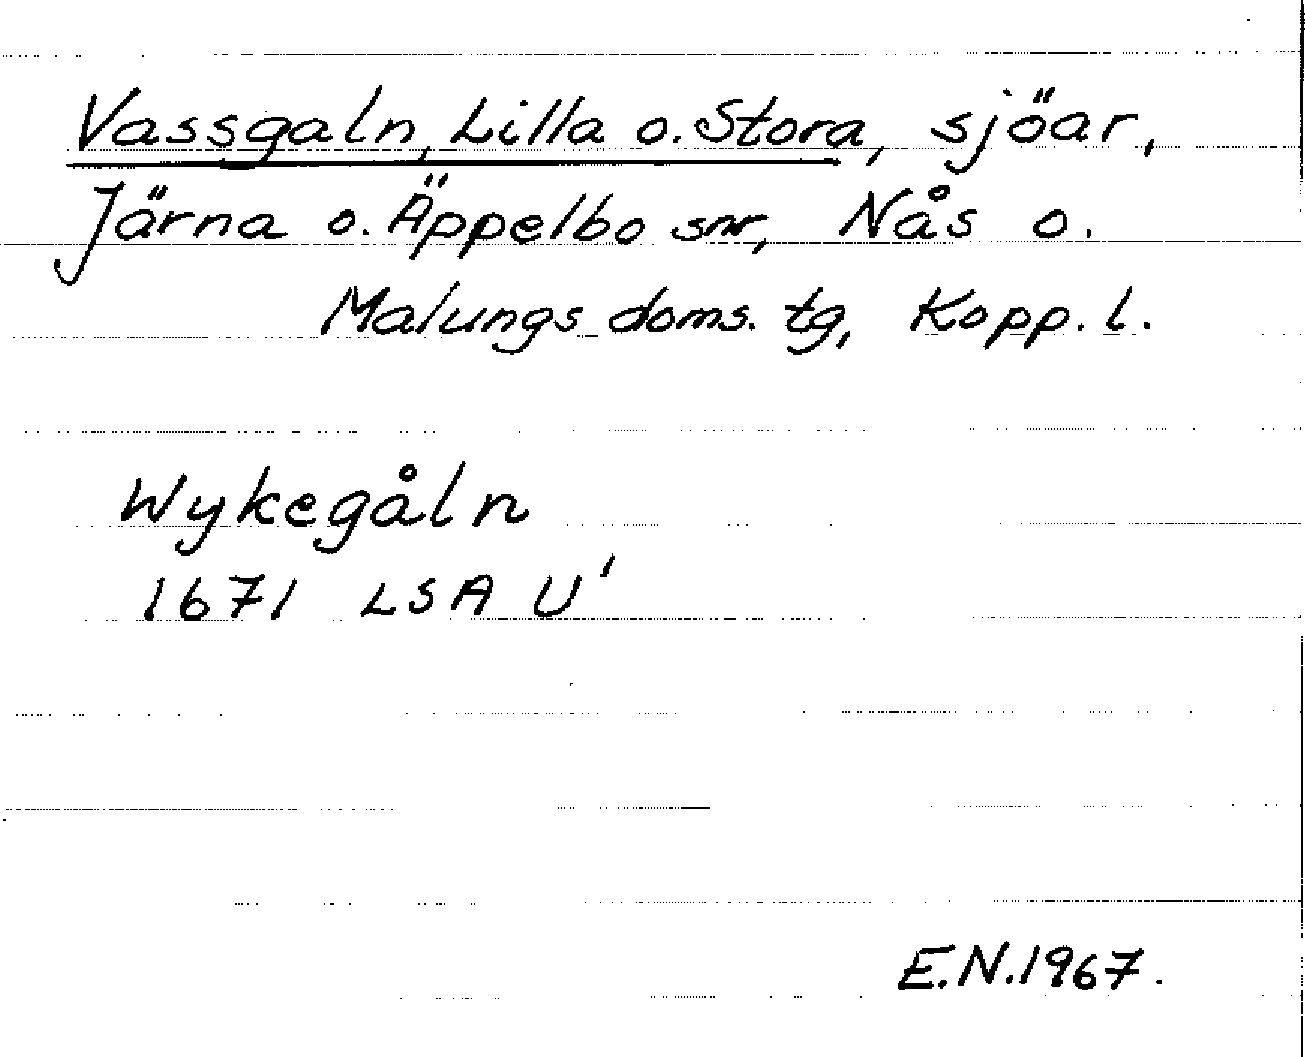 Vassgaln, Lilla o. Stora, sjöar,
Järna o. Äppelbo snr, Nås o.
Malungs doms. tg, Kopp. l.
Wykegåln
1671 LSA U'
E.N. 1967.